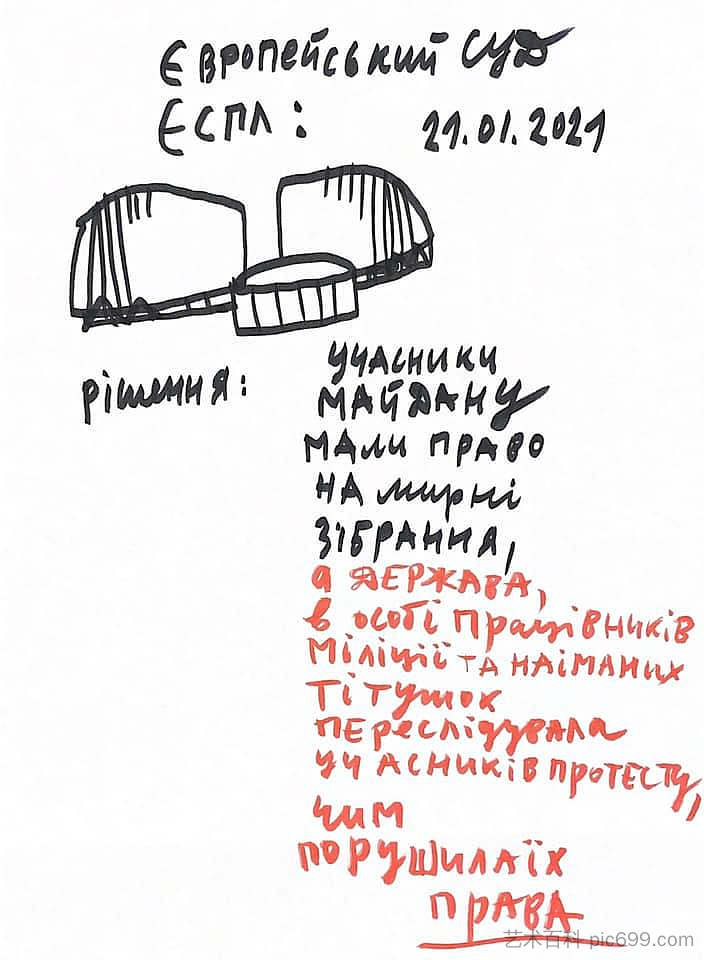 ЄВРОПЕЙСЬКИЙ СУД
ЄСПЛ: 21.01.2021
рішення:
УЧАСНИКИ
МАЙДАНУ
МАЛИ ПРАВО
НА мирні
ЗІБРАННЯ,
а ДЕРЖАВА,
в особі ПРАЦІВНИКІВ
Міліції ТА НАІМАНИХ
ТІТУШОК
ПЕРЕСЛІДУВАЛА
УЧАСНИКІВ ПРОТЕСТУ,
ЧИМ
ПОРУШИЛА ЇХ
ПРАВА
艺术百科 pic699.com